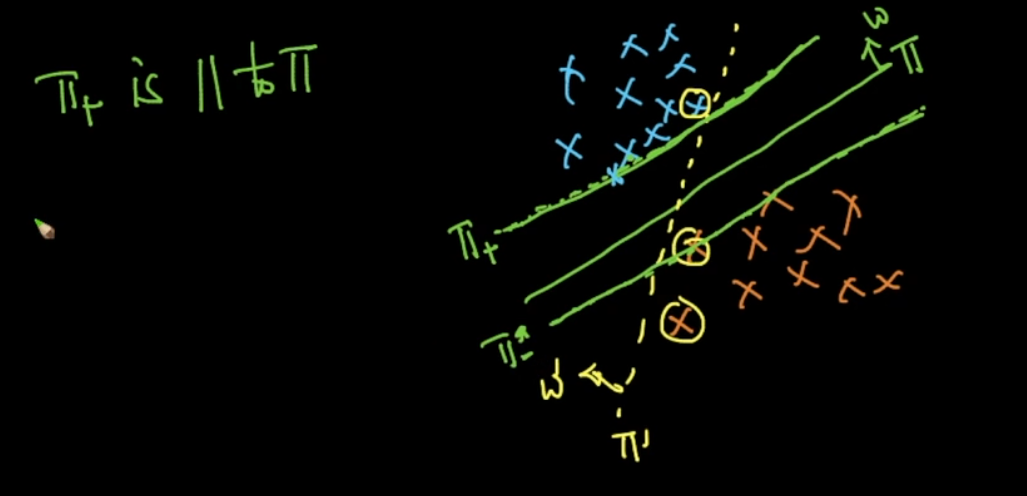 π₊ is || to π
w
π
π₊
π⁻
w'
π'